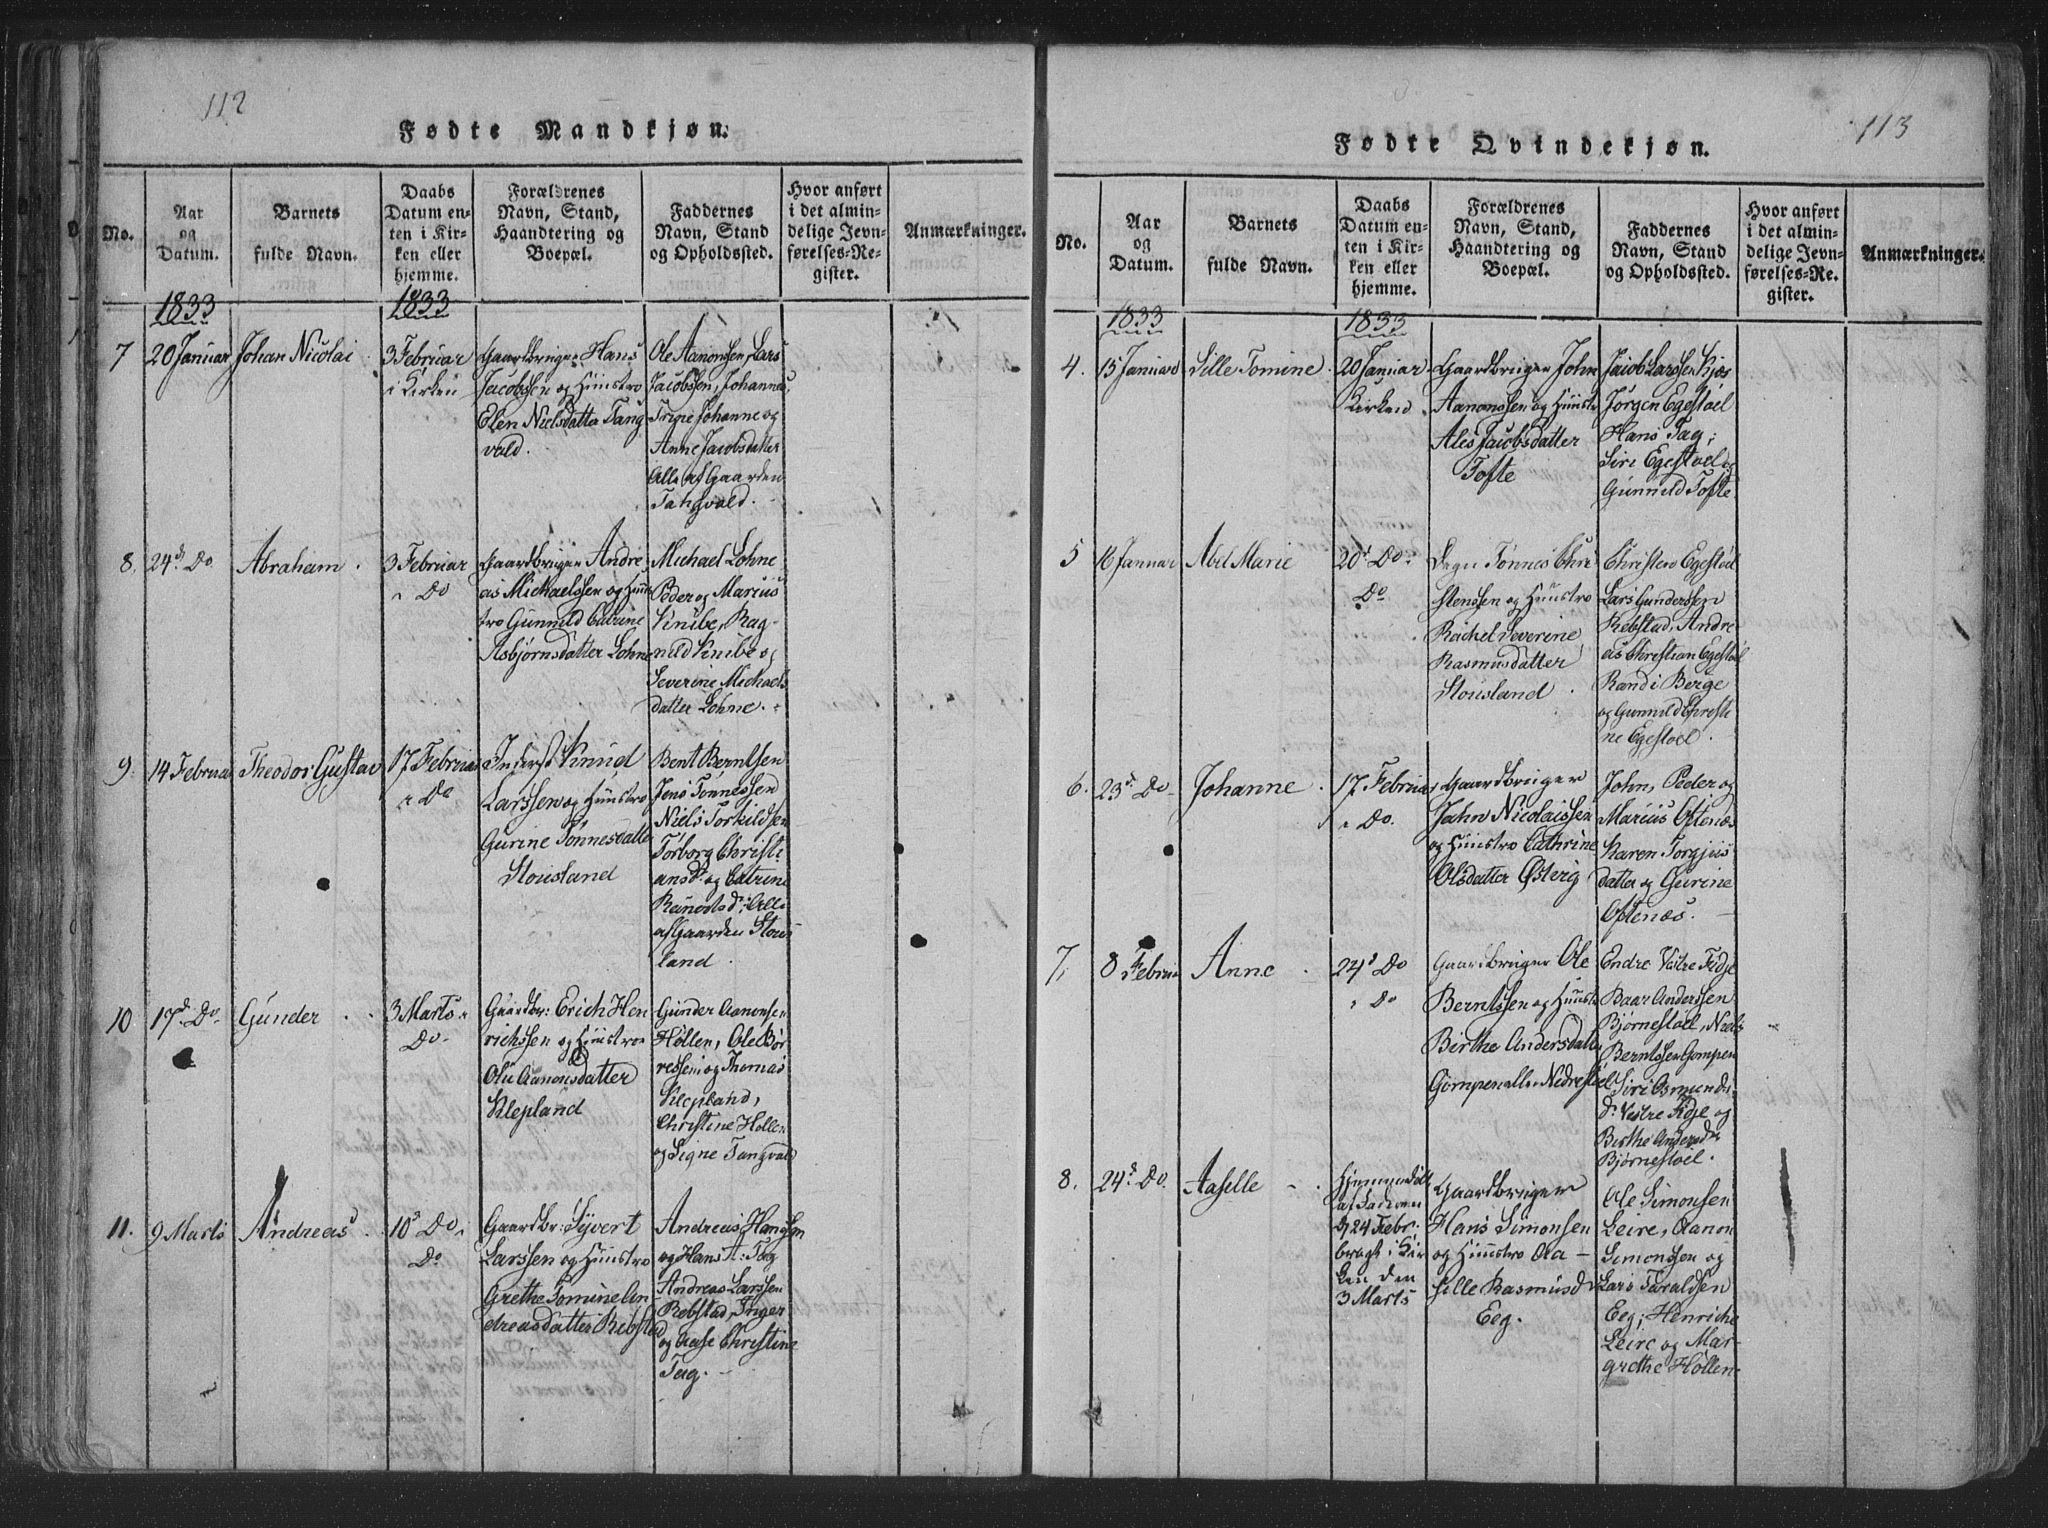 112
Fødte Mandkjøn.
No.
Aar
og
Datum.
Barnets
fulde Navn.
Daabs
Datum en-
ten i Kir-
ken eller
hjemme.
Forældrenes
Navn, Stand,
Haandtering og
Boepæl.
Faddernes
Navn, Stand
og Opholdssted.
Hvor anført
i det almin-
delige Jevn-
førelses-Re-
gister.
Anmærkninger.
1833
1833
7
20 Januar
Johan Nicolai
3 Februar
i Kirken
Gaardbruger Hans
Jacobsen og Hustro
Elen Nielsdatter Tang
vald.
Ole Aanonsen, Lars
Jacobsen, Johannes,
Johanne og
Anne Jacobsdatter
Alle af Gaarden
Tangvald.
8.
24d Do
Abraham
3 Februar
Do
Gaardbruger Andre
as Michaelssen og Hus
tro Gunnild Catrine
Asbjørnsdatter Lohne
Michael Lohne
Peder og Marius
Knibe, Rag-
nild Knibe og
Severine Michaels
datter Lohne.
9.
14 Februar
Theodor Gustav
17 Februar
Do
Inderst Knud
Larssen og Hustro
Gurine Tønnesdatter
Stousland
Bent Berntsen
Jens Tønnessen
Niels Torkildsen
Torborg Christi
ansd. og Catrine
Reinertsd; Alle
af Gaarden Stous
land
10
17d Do
Gunder
3 Marts
Do
Gaardbr: Erich Hen
richssen og Hustro
Olu Aanonsdatter
Klepland
Gunder Aanonsen
Höllen, Ole Bör
ressen og Thomas
Klepland,
Christine Hollen
og Signe Tangvald
11.
9 Marts
Andreas
10d Do
Do
Gaardbr: Syvert
Larssen og Hustro
Grethe Tomine An
dreasdatter Rebstad
Andreas Hansen
og Hans A: Tag
Andreas Larssen
Rebstad, Inger
og Aase Christine
Tag.
113
Fødte Qvindekjøn.
No.
Aar
og
Datum.
Barnets
fulde Navn.
Daabs
Datum en-
ten i Kir-
ken eller
hjemme.
Forældrenes
Navn, Stand,
Haandtering og
Boepæl.
Faddernes
Navn, Stand
og Opholdssted.
Hvor anført
i det almin-
delige Jevn-
førelses-Re-
gister.
Anmærkninger.
1833
1833
4.
15 Januar
Sille Tomine
20 Januar
Kirken
Gaardbruger John
Aanonssen og Hustr
Ales Jacobsdatter
Tofte
Jacob Larssen
Jørgen Egestøel
Hans Tag;
Siri Egestøel
Gunnild Tofte
5
16 Januar
Abel Marie
20d Do
Do
Tønnes Chri
stensen og Hustro
Rachel Severine
Rasmusdatter
Stousland
Christen Egestøel
Lars Gunderssen
Rebstad, Andre
as Christian Egestøel
Randi Berge
og Gunnild Christi
ne Egestøel.
6.
23d Do
Johanne
17 Februar
Do.
Gaardbruger
Jahn Nicolaissen
og Hustro Cathrine
Olsdatter Østerig
John, Peder og
Marius Oftenæs
Karen Torgius
datter og Gurine
Oftenæs.
7,
8 Februar
Anne
24d Do
Do
Gaardbruger Ole
Berntssen og Hustr
Birthe Andersdatter
Gompen eller Nedrestøel
Endre Vestre Fidje
Baar Anderssen
Bjørnestøel, Niels
Berntssen Gompen
Siri Osmunds
d. Vestre Fidje og
Birthe Andersd
Bjørnestøel.
8.
24d Do
Aaselle
Hjemmedøbt
af Faderen
d 24 Febr.
bragt i Kir
ken den
3 Marts
Gaardbruger
Hans Simonsen
og Hustro Aa
sille Rasmusd
Eeg.
Ole Simonsen
Leire, Aanon
Simonssen og
Lars Taraldsen
Eeg; Henriche
Leire og Mar-
grethe Hollen